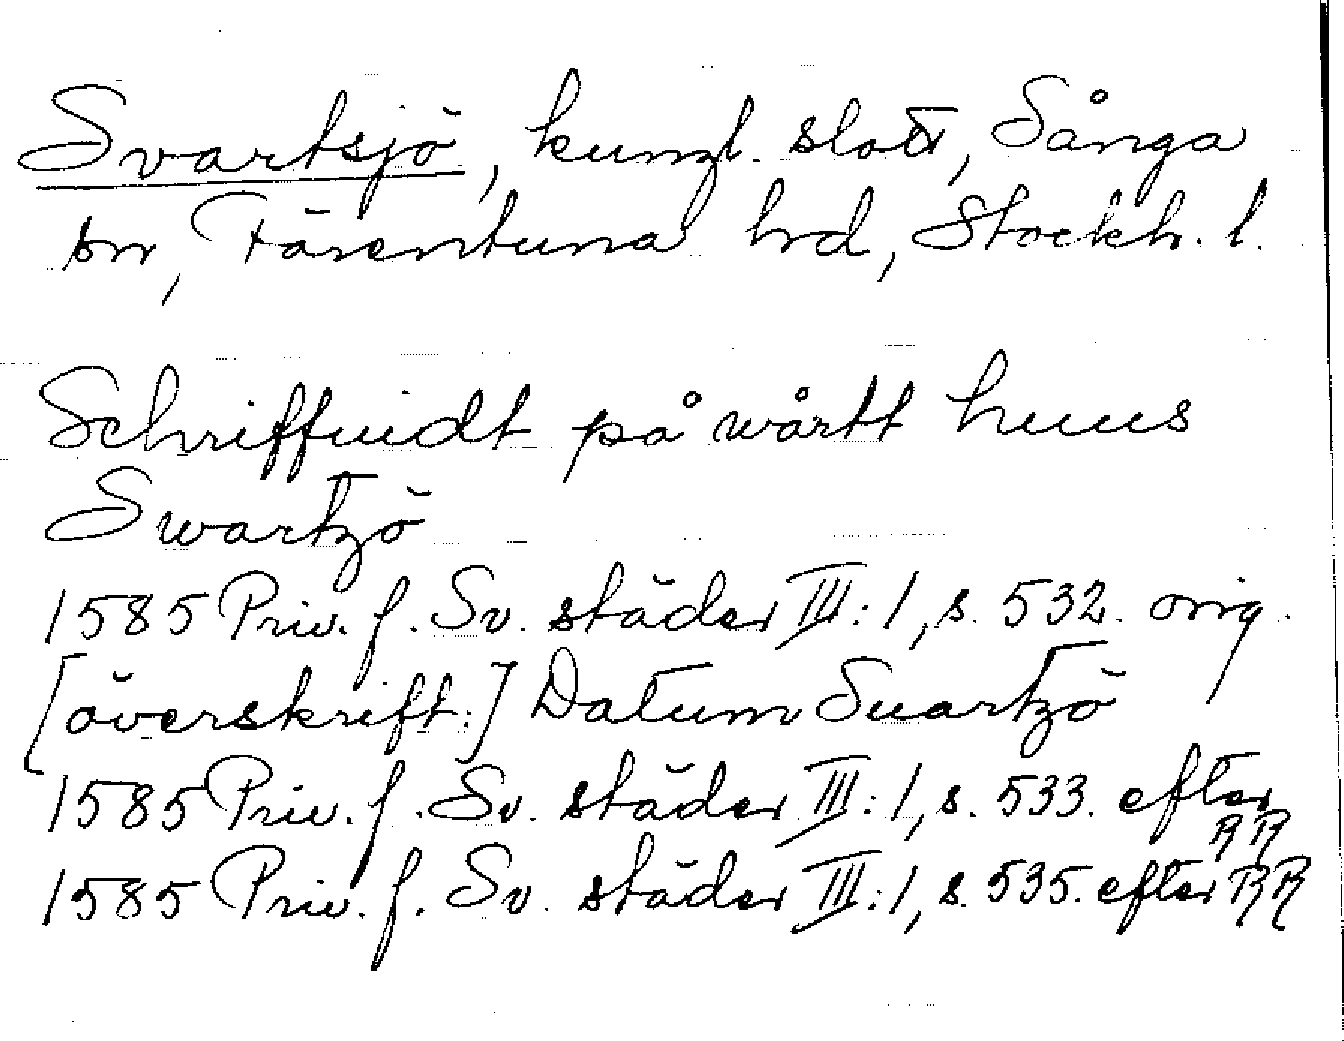 Svartsjö, kungl. slott, Sånga
sn, Färentuna hrd, Stockh. l.
Schriffuidt på wårtt huus
Swartzö
1585 Priv. f. Sv. städer III:1, s. 532. orig.
[överskrift:] Datum Suartzö
1585 Priv. f. Sv. städer III:1, s. 533. efter
RR
1585 Priv. f. Sv. städer III:1, s. 535. efter RR